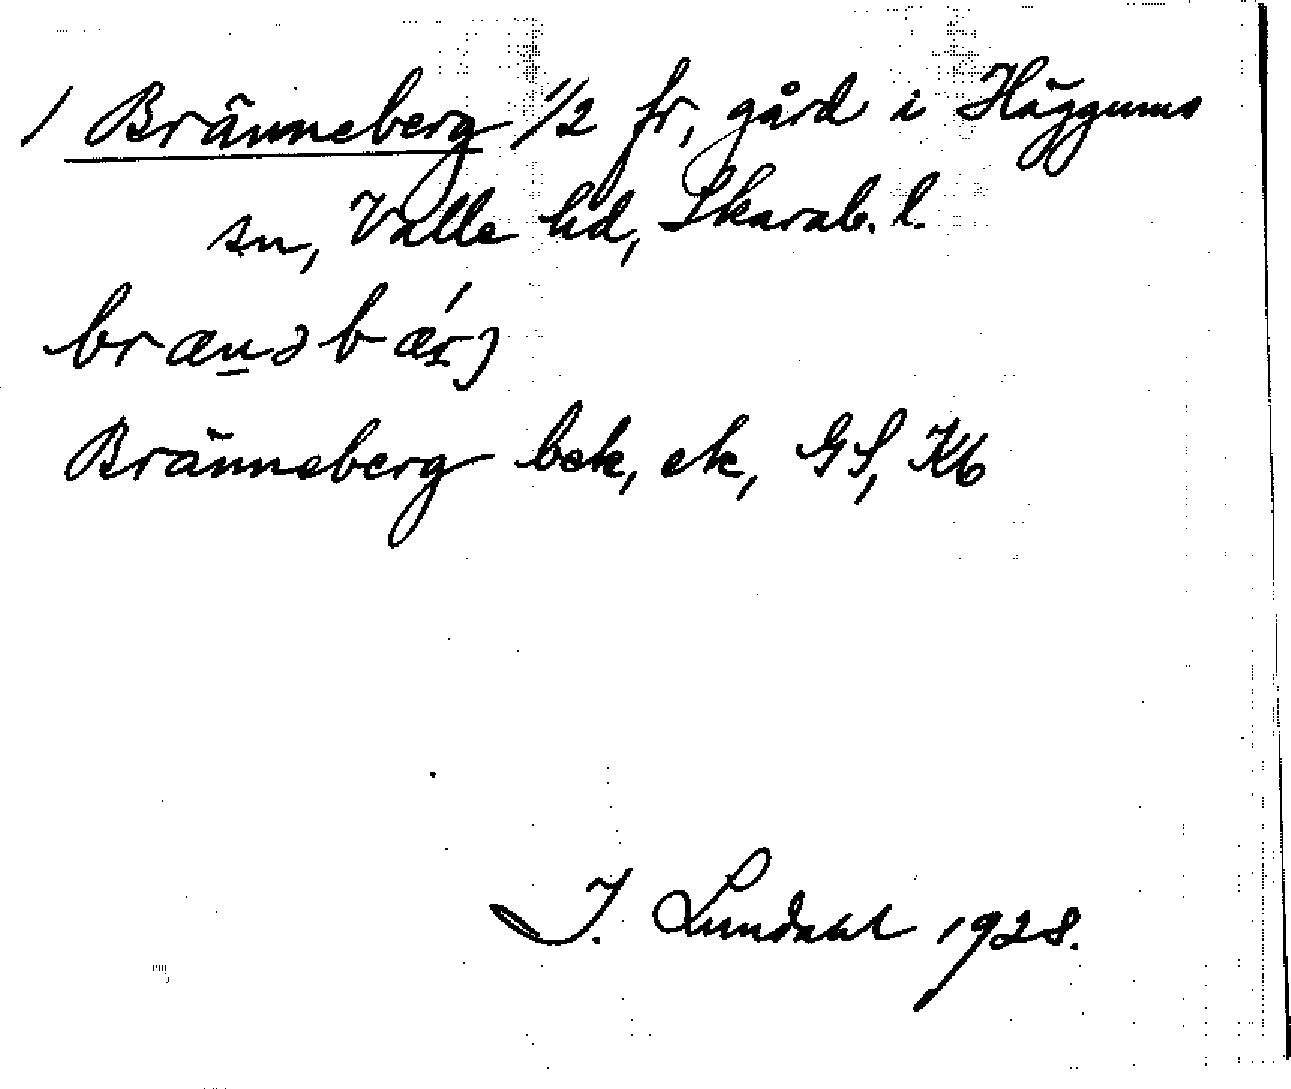 / Bränneberg 1/2 fr, gård i Häggums
sn, Valle hd, Skarab. l.
brænəbǽrj
Bränneberg bek, ek, GS, Kb
I. Lundahl 1928.